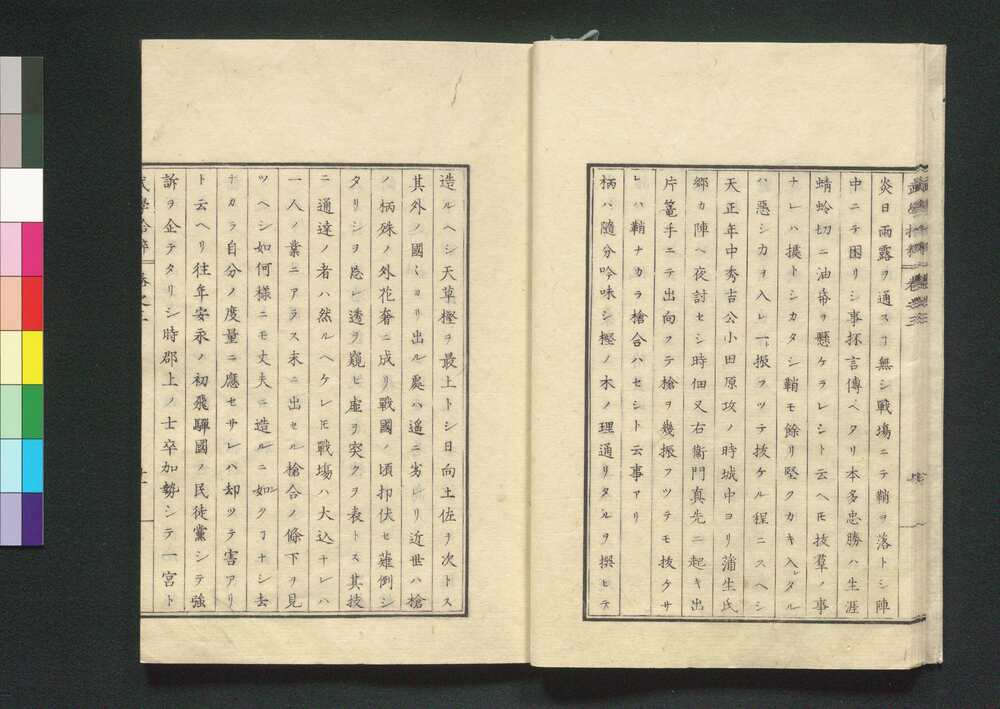 炎日雨露ヲ通スヿ無シ戰塲ニテ鞘ヲ落トシ陣
中ニテ困リシ事抔言傳ヘタリ本多忠勝ハ生涯
蜻蛉切ニ油帋ヲ懸ケラレシト云ヘ𪜈拔羣ノ事
ナレハ據トシカタシ鞘モ餘リ堅クカキ入レタル
ハ惡シカヲ入レ一振フツテ拔ケル程ニスヘシ
天正年中秀吉公小田原攻ノ時城中ヨリ蒲生氏
郷カ陣ヘ夜討セシ時佃又右衞門真先ニ起キ出
片篭手ニテ出向フテ槍ヲ幾振フツテモ拔ケサ
レハ鞘ナカラ槍合ハセシト云事アリ
柄ハ隨分吟味シ樫ノ木ノ理通リタルヲ撰ヒテ
造ルヘシ天草樫ヲ最上トシ日向土佐ヲ次トス
其外ノ國〱ヨリ出ル處ハ遥ニ劣レリ近世ハ槍
ノ柄殊ノ外花奢ニ成リ戰國ノ頃扣伏セ薙倒シ
タリシヲ忘レ透ヲ窺ヒ虚ヲ突クヲ表トス其技
ニ通達ノ者ハ然ルヘケレ𪜈戰塲ハ大込ナレハ
一人ノ業ニアラス末ニ出セル槍合ノ條下ヲ見
ツヘシ如何樣ニモ丈夫ニ造ルニ如クヿナシ去
ナカラ自分ノ度量ニ應セサレハ却ツテ害アリ
ト云ヘリ往年安永ノ初飛驒國ノ民徒黨シテ強
訴ヲ企テタリシ時郡上ノ士卒加勢シテ一宮ト